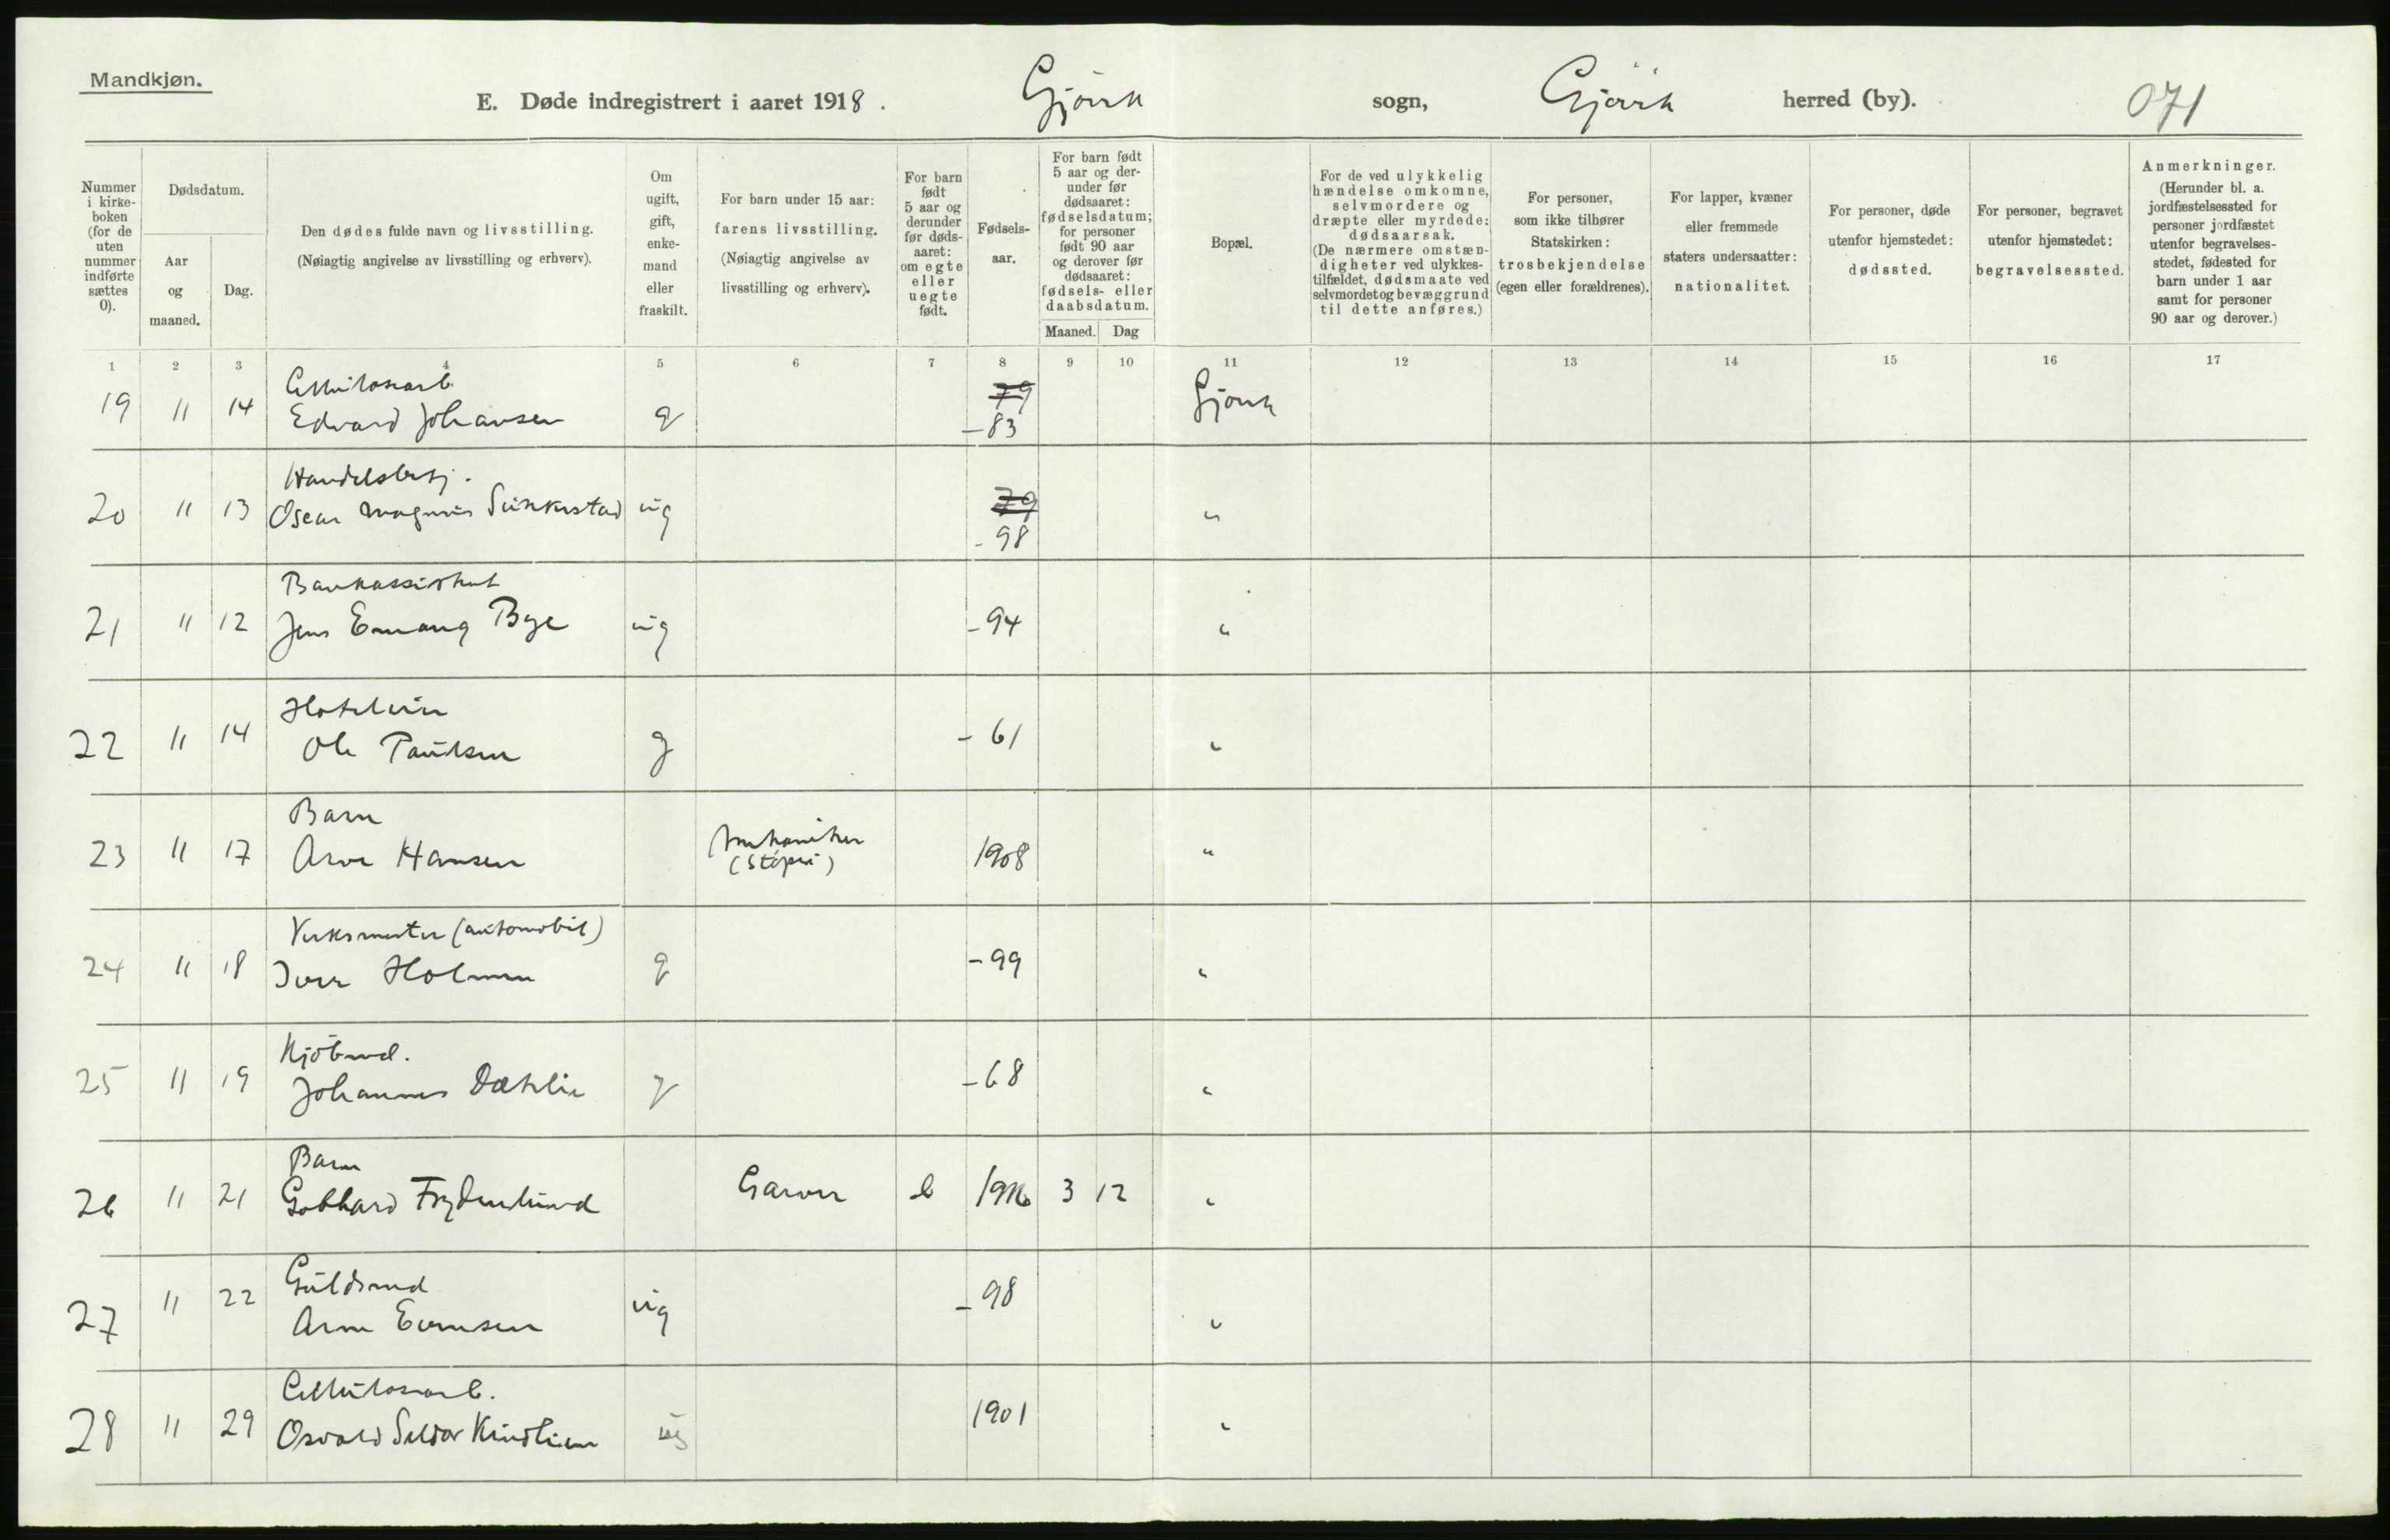 Mandkjøn.
E. Døde indregistrert i aaret 1918. Gjövik sogn, Gjövik herred (by). 071
Nummer i kirkeboken (for de uten nummer indførte sættes 0).
Dødsdatum.
Aar og maaned.
Dag.
Den dødes fulde navn og livsstilling.
(Nøiagtig angivelse av livsstilling og erhverv).
Om ugift, gift, enkemand eller fraskilt.
For barn under 15 aar: farens livsstilling.
(Nøiagtig angivelse av livsstilling og erhverv).
For barn født 5 aar og derunder før dødsaaret: om egte eller uegte født.
Fødselsaar.
For barn født 5 aar og derunder før dødsaaret: fødselsdatum; for personer født 90 aar og derover før dødsaaret: fødsels- eller daabsdatum.
Maaned. Dag
Bopæl.
For de ved ulykkelig hændelse omkomne, selvmordere og dræpte eller myrdede: dødsaarsak.
(De nærmere omstændigheter ved ulykkestilfældet, dødsmaate ved selvmordet og bevæggrund til dette anføres.)
For personer, som ikke tilhører Statskirken: trosbekjendelse (egen eller forældrenes).
For lapper, kvæner eller fremmede staters undersaatter: nationalitet.
For personer, døde utenfor hjemstedet: dødssted.
For personer, begravet utenfor hjemstedet: begravelsessted.
Anmerkninger.
(Herunder bl. a. jordfæstelsessted for personer jordfæstet utenfor begravelsesstedet, fødested for barn under 1 aar samt for personer 90 aar og derover.)
1 2 3 4 5 6 7 8 9 10 11 12 13 14 15 16 17
Cellulosearb. 79
19 11 14 Edvard Johansen g -83 Gjövik
Handelsbetj. 79
20 11 13 Oscar Magnus ug -98 "
Bankassistent
21 11 12 Jens Emang Bye ug -94 "
Hoteleier
22 11 14 Ole Paulsen g -61 "
Barn
23 11 17 Arve Hansen Mekaniker (Støperi) 1908 "
Verksmester (automobil)
24 11 18 Iver Holmen g -99 "
Kjöbmd.
25 11 19 Johannes Dæhlie g -68 "
Barn
26 11 21 Gebhard Frydenlund Garver e 1916 3 12 "
Guldsmed
27 11 22 Arne Evensen ug -98 "
Cellulosearb.
28 11 29 Osvald Kindlien ug 1901 "